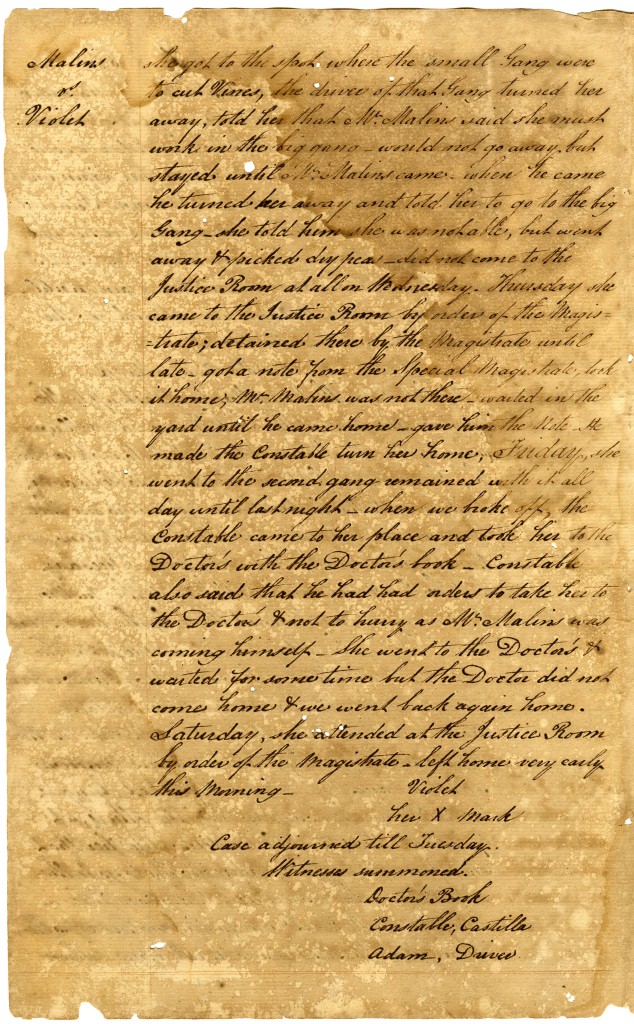 Malins
vs.
Violet
she got to the spot where the small Gang were
to cut Vines, the driver of that Gang turned her
away, told her that Mr. Malins said she must
work in the big gang - would not go away, but
stayed until Mr. Malins came - when he came
he turned her away and told her to go to the big
Gang - she told him she was not able, but went
away & picked dry peas - did not come to the
Justice Room at all on Wednesday - Thursday she
came to the Justice Room by order of the Magis=
=trate; detained there by the Magistrate until
late - got a note from the Special Magistrate, took
it home; Mr. Malins was not there - waited in the
yard until he came home - gave him the Note - He
made the Constable turn her home, Friday, she
went to the second gang remained with it all
day until last night - when we broke off, the
Constable came to her place and took her to the
Doctor's with the Doctor's book - Constable
also said that he had had orders to take her to
the Doctor's & not to hurry as Mr. Malins was
coming himself - She went to the Doctor's &
waited for some time but the Doctor did not
come home & we went back again home.
Saturday, she attended at the Justice Room
by order of the Magistrate - left home very early
this Morning -
Violet
her X Mark
Case adjourned till Tuesday.
Witnesses summoned.
Doctor's Book
Constable, Castilla
Adam, Driver